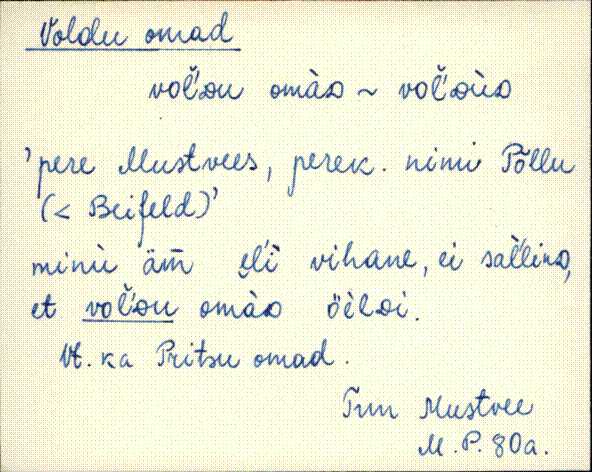 Voldu omad
voľᴅu omàᴅ ~ voľᴅùᴅ
'pere Mustvees, perek. nimi Põllu
(< Beifeld)'
minù äm̄ ḙlì vihane, ei saľlinᴅ,
et voľᴅu omàᴅ öèlᴅi.
Vt. ka Pritsu omad.
Trm Mustvee
M. P. 80a.